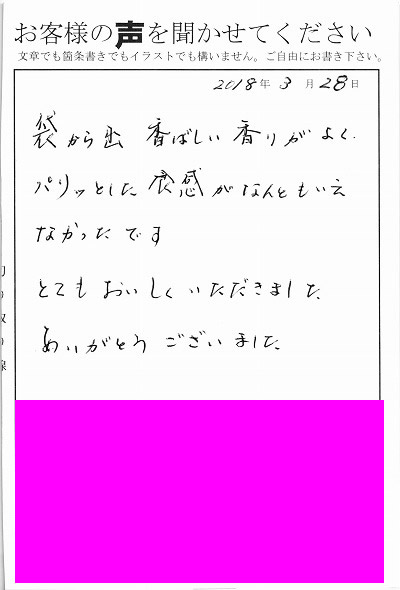 お客様の声を聞かせてください
文章でも箇条書きでもイラストでも構いません。ご自由にお書き下さい。
2018年 3月 28日
袋から出 香ばしい香りがよく
パリッとした食感がなんともいえ
なかったです
とてもおいしくいただきました
ありがとうございました